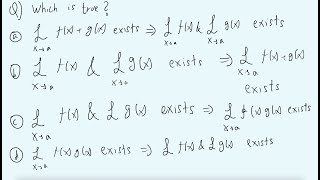 Q) Which is true?
(a) ℒ x→a f(x) + g(x) exists ⇒ ℒ x→a f(x) & ℒ x→a g(x) exists
(b) ℒ x→a f(x) & ℒ x→a g(x) exists ⇒ ℒ x→a f(x) + g(x) exists
(c) ℒ x→a f(x) & ℒ g(x) exists ⇒ ℒ x→a f(x) g(x) exists
(d) ℒ x→a f(x) g(x) exists ⇒ ℒ f(x) & ℒ g(x) exists